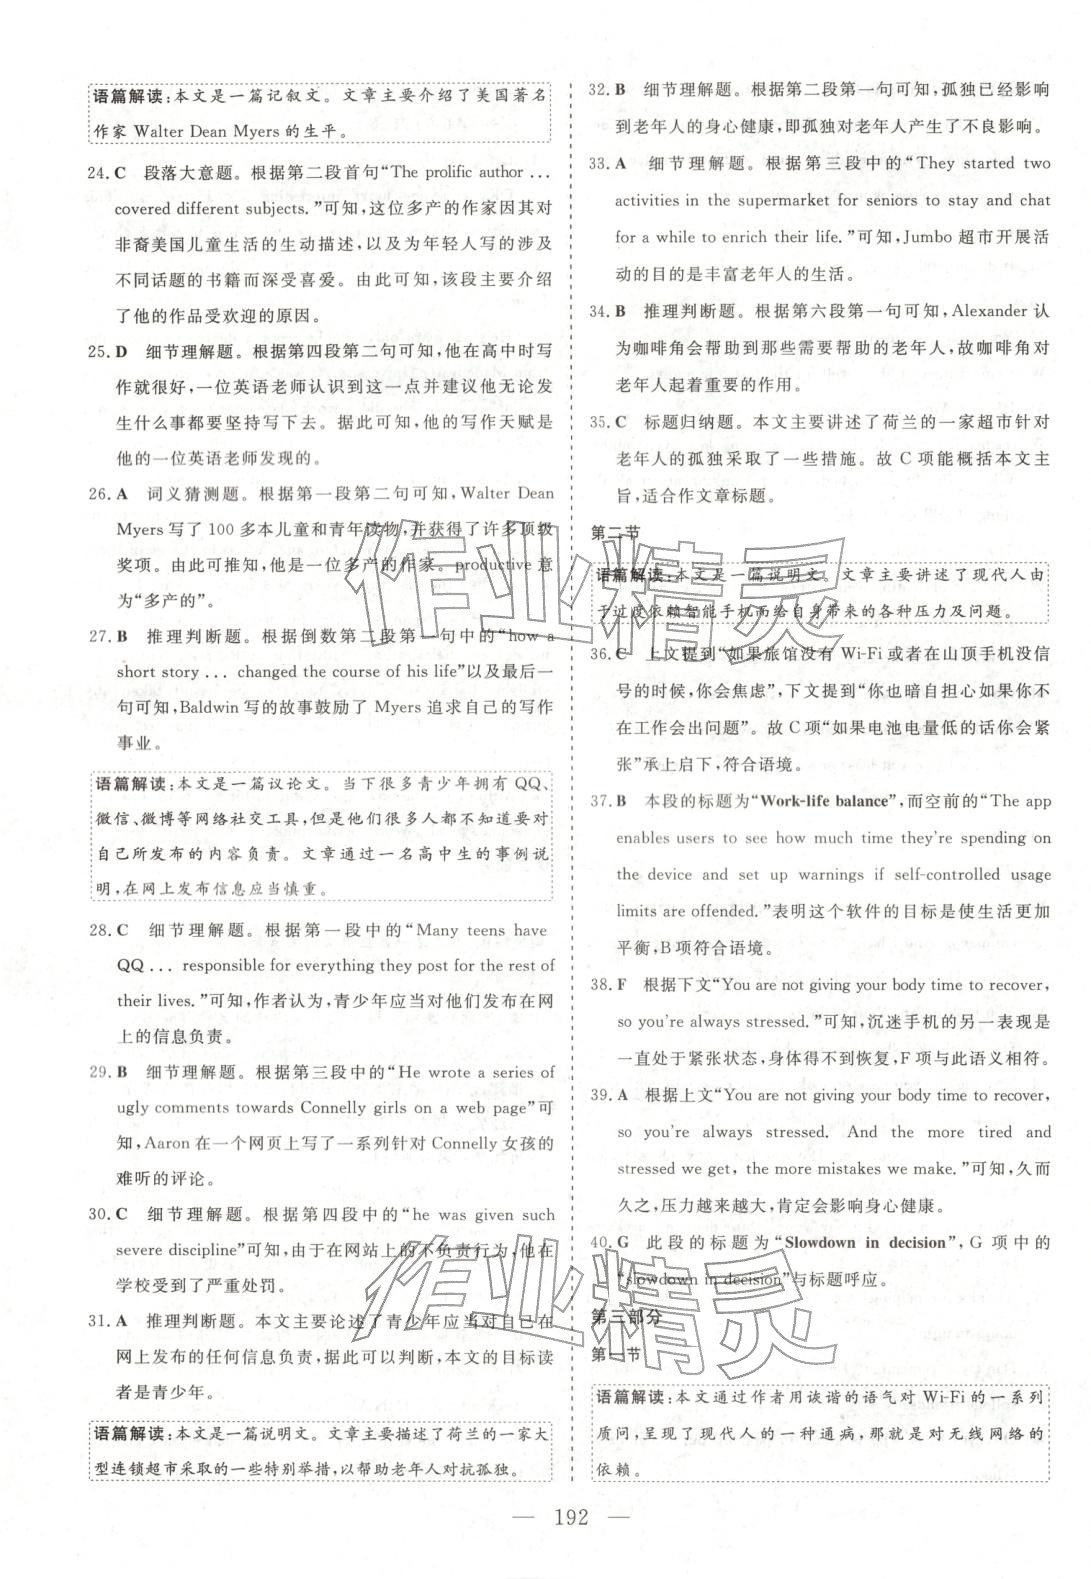 语篇解读:本文是一篇记叙文。文章主要介绍了美国著名
作家 Walter Dean Myers 的生平。
24. C 段落大意题。根据第二段首句“The prolific author …
covered different subjects.”可知,这位多产的作家因其对
非裔美国儿童生活的生动描述,以及为年轻人写的涉及
不同话题的书籍而深受喜爱。由此可知,该段主要介绍
了他的作品受欢迎的原因。
25. D 细节理解题。根据第四段第二句可知,他在高中时写
作就很好,一位英语老师认识到这一点并建议他无论发
生什么事都要坚持写下去。据此可知,他的写作天赋是
他的一位英语老师发现的。
26. A 词义猜测题。根据第一段第二句可知,Walter Dean
Myers 写了 100 多本儿童和青年读物,并获得了许多顶级
奖项。由此可推知,他是一位多产的作家。productive 意
为“多产的”。
27. B 推理判断题。根据倒数第二段第一句中的“how a
short story … changed the course of his life”以及最后一
句可知,Baldwin 写的故事鼓励了 Myers 追求自己的写作
事业。
语篇解读:本文是一篇议论文。当下很多青少年拥有 QQ、
微信、微博等网络社交工具,但是他们很多人都不知道要对
自己所发布的内容负责。文章通过一名高中生的事例说
明,在网上发布信息应当慎重。
28. C 细节理解题。根据第一段中的“Many teens have
QQ … responsible for everything they post for the rest of
their lives.”可知,作者认为,青少年应当对他们发布在网
上的信息负责。
29. B 细节理解题。根据第三段中的“He wrote a series of
ugly comments towards Connelly girls on a web page”可
知,Aaron 在一个网页上写了一系列针对 Connelly 女孩的
难听的评论。
30. C 细节理解题。根据第四段中的“he was given such
severe discipline”可知,由于在网站上的不负责行为,他在
学校受到了严重处罚。
31. A 推理判断题。本文主要论述了青少年应当对自己在
网上发布的任何信息负责,据此可以判断,本文的目标读
者是青少年。
语篇解读:本文是一篇说明文。文章主要描述了荷兰的一家大
型连锁超市采取的一些特别举措,以帮助老年人对抗孤独。
32. B 细节理解题。根据第二段第一句可知,孤独已经影响
到老年人的身心健康,即孤独对老年人产生了不良影响。
33. A 细节理解题。根据第三段中的“They started two
activities in the supermarket for seniors to stay and chat
for a while to enrich their life.”可知,Jumbo 超市开展活
动的目的是丰富老年人的生活。
34. B 推理判断题。根据第六段第一句可知,Alexander 认
为咖啡角会帮助到那些需要帮助的老年人,故咖啡角对
老年人起着重要的作用。
35. C 标题归纳题。本文主要讲述了荷兰的一家超市针对
老年人的孤独采取了一些措施。故 C 项能概括本文主
旨,适合作文章标题。
第二节
语篇解读:本文是一篇说明文。文章主要讲述了现代人由
于过度依赖智能手机而给自身带来的各种压力及问题。
36. C 上文提到“如果旅馆没有 Wi-Fi 或者在山顶手机没信
号的时候,你会焦虑”,下文提到“你也暗自担心如果你不
在工作会出问题”。故 C 项“如果电池电量低的话你会紧
张”承上启下,符合语境。
37. B 本段的标题为“Work-life balance”,而空前的“The app
enables users to see how much time they're spending on
the device and set up warnings if self-controlled usage
limits are offended.”表明这个软件的目标是使生活更加
平衡,B 项符合语境。
38. F 根据下文“You are not giving your body time to recover,
so you're always stressed.”可知,沉迷手机的另一表现是
一直处于紧张状态,身体得不到恢复,F 项与此语义相符。
39. A 根据上文“You are not giving your body time to recover,
so you're always stressed. And the more tired and
stressed we get, the more mistakes we make.”可知,久而
久之,压力越来越大,肯定会影响身心健康。
40. G 此段的标题为“Slowdown in decision”,G 项中的
“slowdown in decision”与标题呼应。
第三部分
第一节
语篇解读:本文通过作者用诙谐的语气对 Wi-Fi 的一系列
质问,呈现了现代人的一种通病,那就是对无线网络的
依赖。
— 192 —
作业精灵
作业精灵